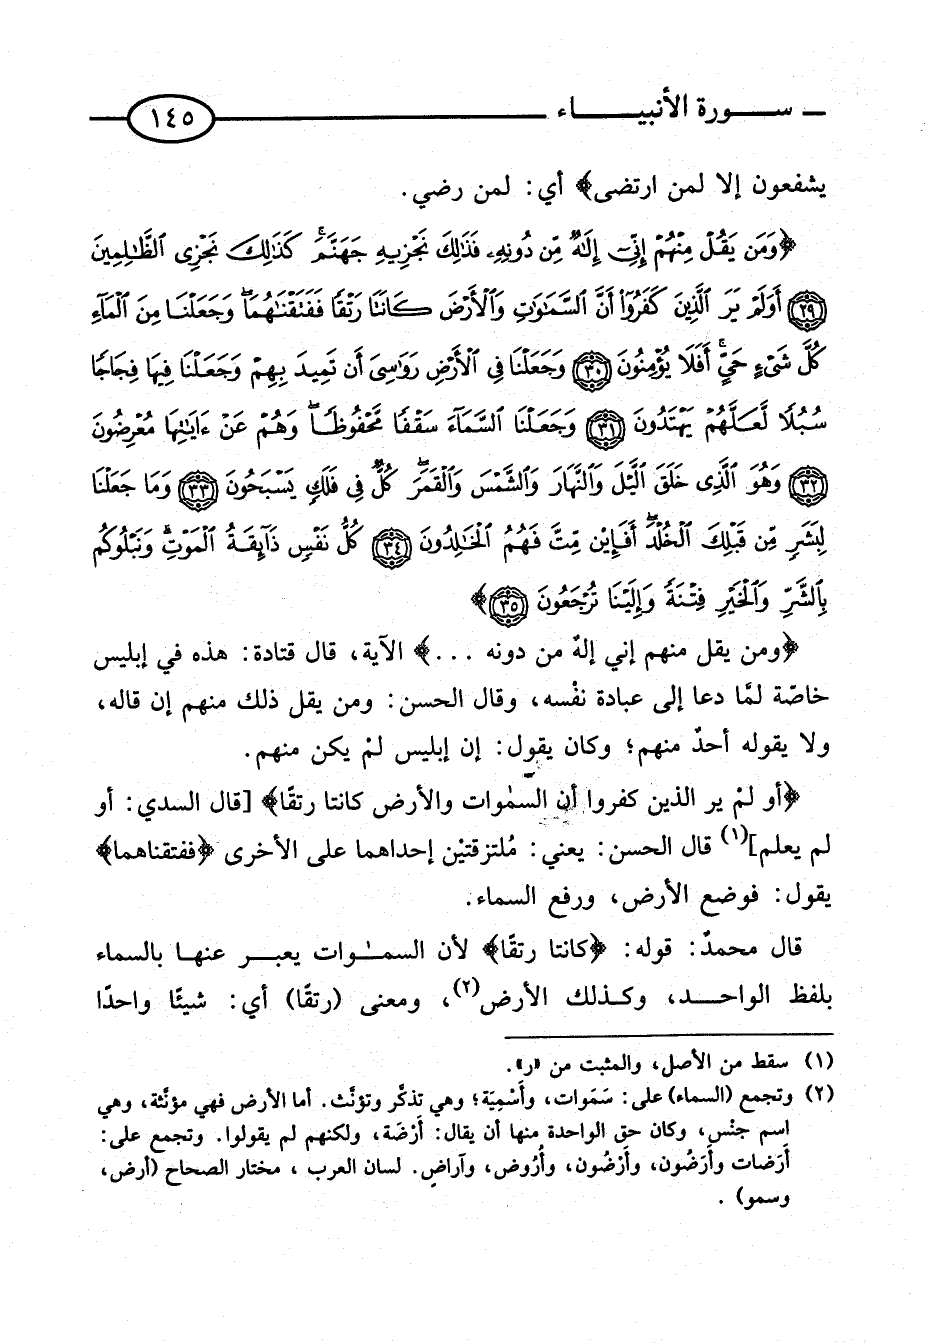 ســـورة الأنبيـــاء ١٤٥
يشفعون إلا لمن ارتضى﴾ أي: لمن رضي.
﴿وَمَن يَقُلْ مِنْهُمْ إِنِّىٓ إِلَٰهٌ مِّن دُونِهِۦ فَذَٰلِكَ نَجْزِيهِ جَهَنَّمَ ۚ كَذَٰلِكَ نَجْزِى ٱلظَّٰلِمِينَ
(٢٩) أَوَلَمْ يَرَ ٱلَّذِينَ كَفَرُوٓا۟ أَنَّ ٱلسَّمَٰوَٰتِ وَٱلْأَرْضَ كَانَتَا رَتْقًا فَفَتَقْنَٰهُمَا ۖ وَجَعَلْنَا مِنَ ٱلْمَآءِ
كُلَّ شَىْءٍ حَىٍّ ۚ أَفَلَا يُؤْمِنُونَ (٣٠) وَجَعَلْنَا فِى ٱلْأَرْضِ رَوَٰسِىَ أَن تَمِيدَ بِهِمْ وَجَعَلْنَا فِيهَا فِجَاجًا
سُبُلًا لَّعَلَّهُمْ يَهْتَدُونَ (٣١) وَجَعَلْنَا ٱلسَّمَآءَ سَقْفًا مَّحْفُوظًا ۖ وَهُمْ عَنْ ءَايَٰتِهَا مُعْرِضُونَ
(٣٢) وَهُوَ ٱلَّذِى خَلَقَ ٱلَّيْلَ وَٱلنَّهَارَ وَٱلشَّمْسَ وَٱلْقَمَرَ ۖ كُلٌّ فِى فَلَكٍ يَسْبَحُونَ (٣٣) وَمَا جَعَلْنَا
لِبَشَرٍ مِّن قَبْلِكَ ٱلْخُلْدَ ۖ أَفَإِي۟ن مِّتَّ فَهُمُ ٱلْخَٰلِدُونَ (٣٤) كُلُّ نَفْسٍ ذَآئِقَةُ ٱلْمَوْتِ ۗ وَنَبْلُوكُم
بِٱلشَّرِّ وَٱلْخَيْرِ فِتْنَةً ۖ وَإِلَيْنَا تُرْجَعُونَ (٣٥)﴾
﴿ومن يقل منهم إني إلهٌ من دونه ...﴾ الآية، قال قتادة: هذه في إبليس
خاصّة لمَّا دعا إلى عبادة نفْسه، وقال الحسن: ومن يقل ذلك منهم إن قاله،
ولا يقوله أحدٌ منهم؛ وكان يقول: إن إبليس لمْ يكن منهم.
﴿أو لمْ ير الذين كفروا أن السمٰوات والأرض كانتا رتقًا﴾ [قال السدي: أو
لم يعلم](١) قال الحسن: يعني: مُلتزقتيْن إحداهما على الأخرى ﴿ففتقناهما﴾
يقول: فوضع الأرض، ورفع السماء.
قال محمدٌ: قوله: ﴿كانتا رتقًا﴾ لأن السمـٰـوات يعبـــر عنهـا بالسماء
بلفظ الواحـــد، وكـذلك الأرض(٢)، ومعنى (رتقًا) أي: شيئًا واحدًا
(١) سقط من الأصل، والمثبت من «ر».
(٢) وتجمع (السماء) على: سَمَوات، وأَسْمِيَة؛ وهي تذكَّر وتؤنَّث. أما الأرض فهي مؤنَّثة، وهي
اسم جنْس، وكان حق الواحدة منها أن يقال: أَرْضَة، ولكنهم لم يقولوا. وتجمع على:
أَرَضات وأَرَضُون، وأَرْضُون، وأُرُوض، وآراضٍ. لسان العرب ، مختار الصحاح (أرض،
وسمو) .